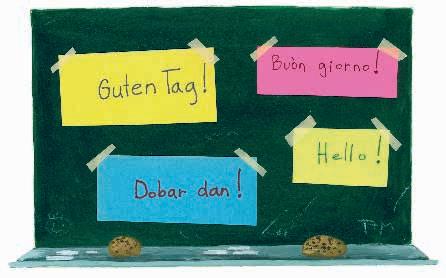 Guten Tag!
Buòn giorno!
Hello!
Dobar dan!